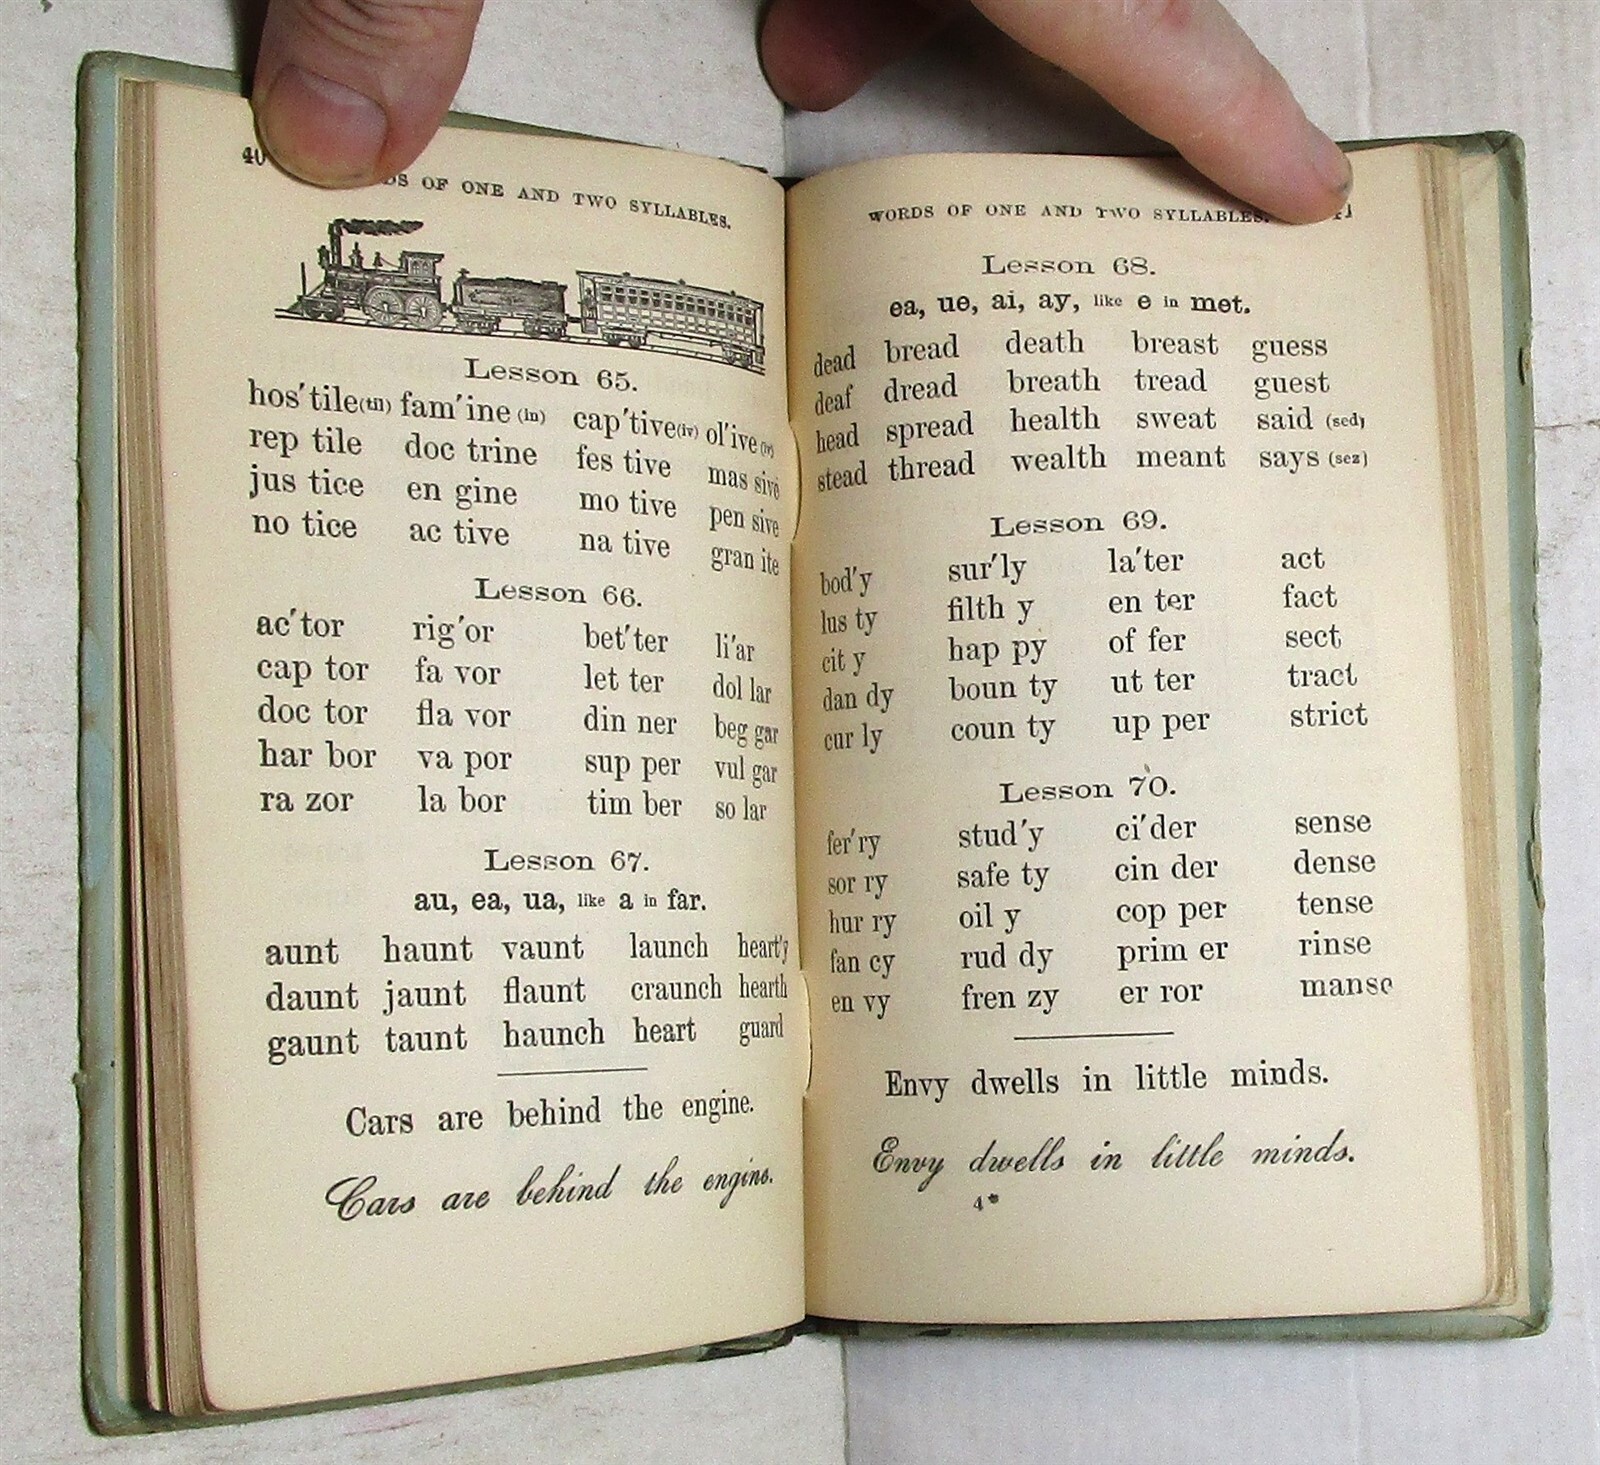 40
OF ONE AND TWO SYLLABLES.
Lesson 65.
hos'tile(til) fam'ine (in) cap'tive(iv) ol'ive
rep tile doc trine fes tive mas sive
jus tice en gine mo tive pen sive
no tice ac tive na tive gran ite
Lesson 66.
ac'tor rig'or bet'ter li'ar
cap tor fa vor let ter dol lar
doc tor fla vor din ner beg gar
har bor va por sup per vul gar
ra zor la bor tim ber so lar
Lesson 67.
au, ea, ua, like a in far.
aunt haunt vaunt launch heart'y
daunt jaunt flaunt craunch hearth
gaunt taunt haunch heart guard
Cars are behind the engine.
Cars are behind the engine.
WORDS OF ONE AND TWO SYLLABLES.
Lesson 68.
ea, ue, ai, ay, like e in met.
dead bread death breast guess
deaf dread breath tread guest
head spread health sweat said (sed)
stead thread wealth meant says (sez)
Lesson 69.
bod'y sur'ly la'ter act
lus ty filth y en ter fact
cit y hap py of fer sect
dan dy boun ty ut ter tract
cur ly coun ty up per strict
Lesson 70.
fer'ry stud'y ci'der sense
sor ry safe ty cin der dense
hur ry oil y cop per tense
fan cy rud dy prim er rinse
en vy fren zy er ror manse
Envy dwells in little minds.
Envy dwells in little minds.
4*